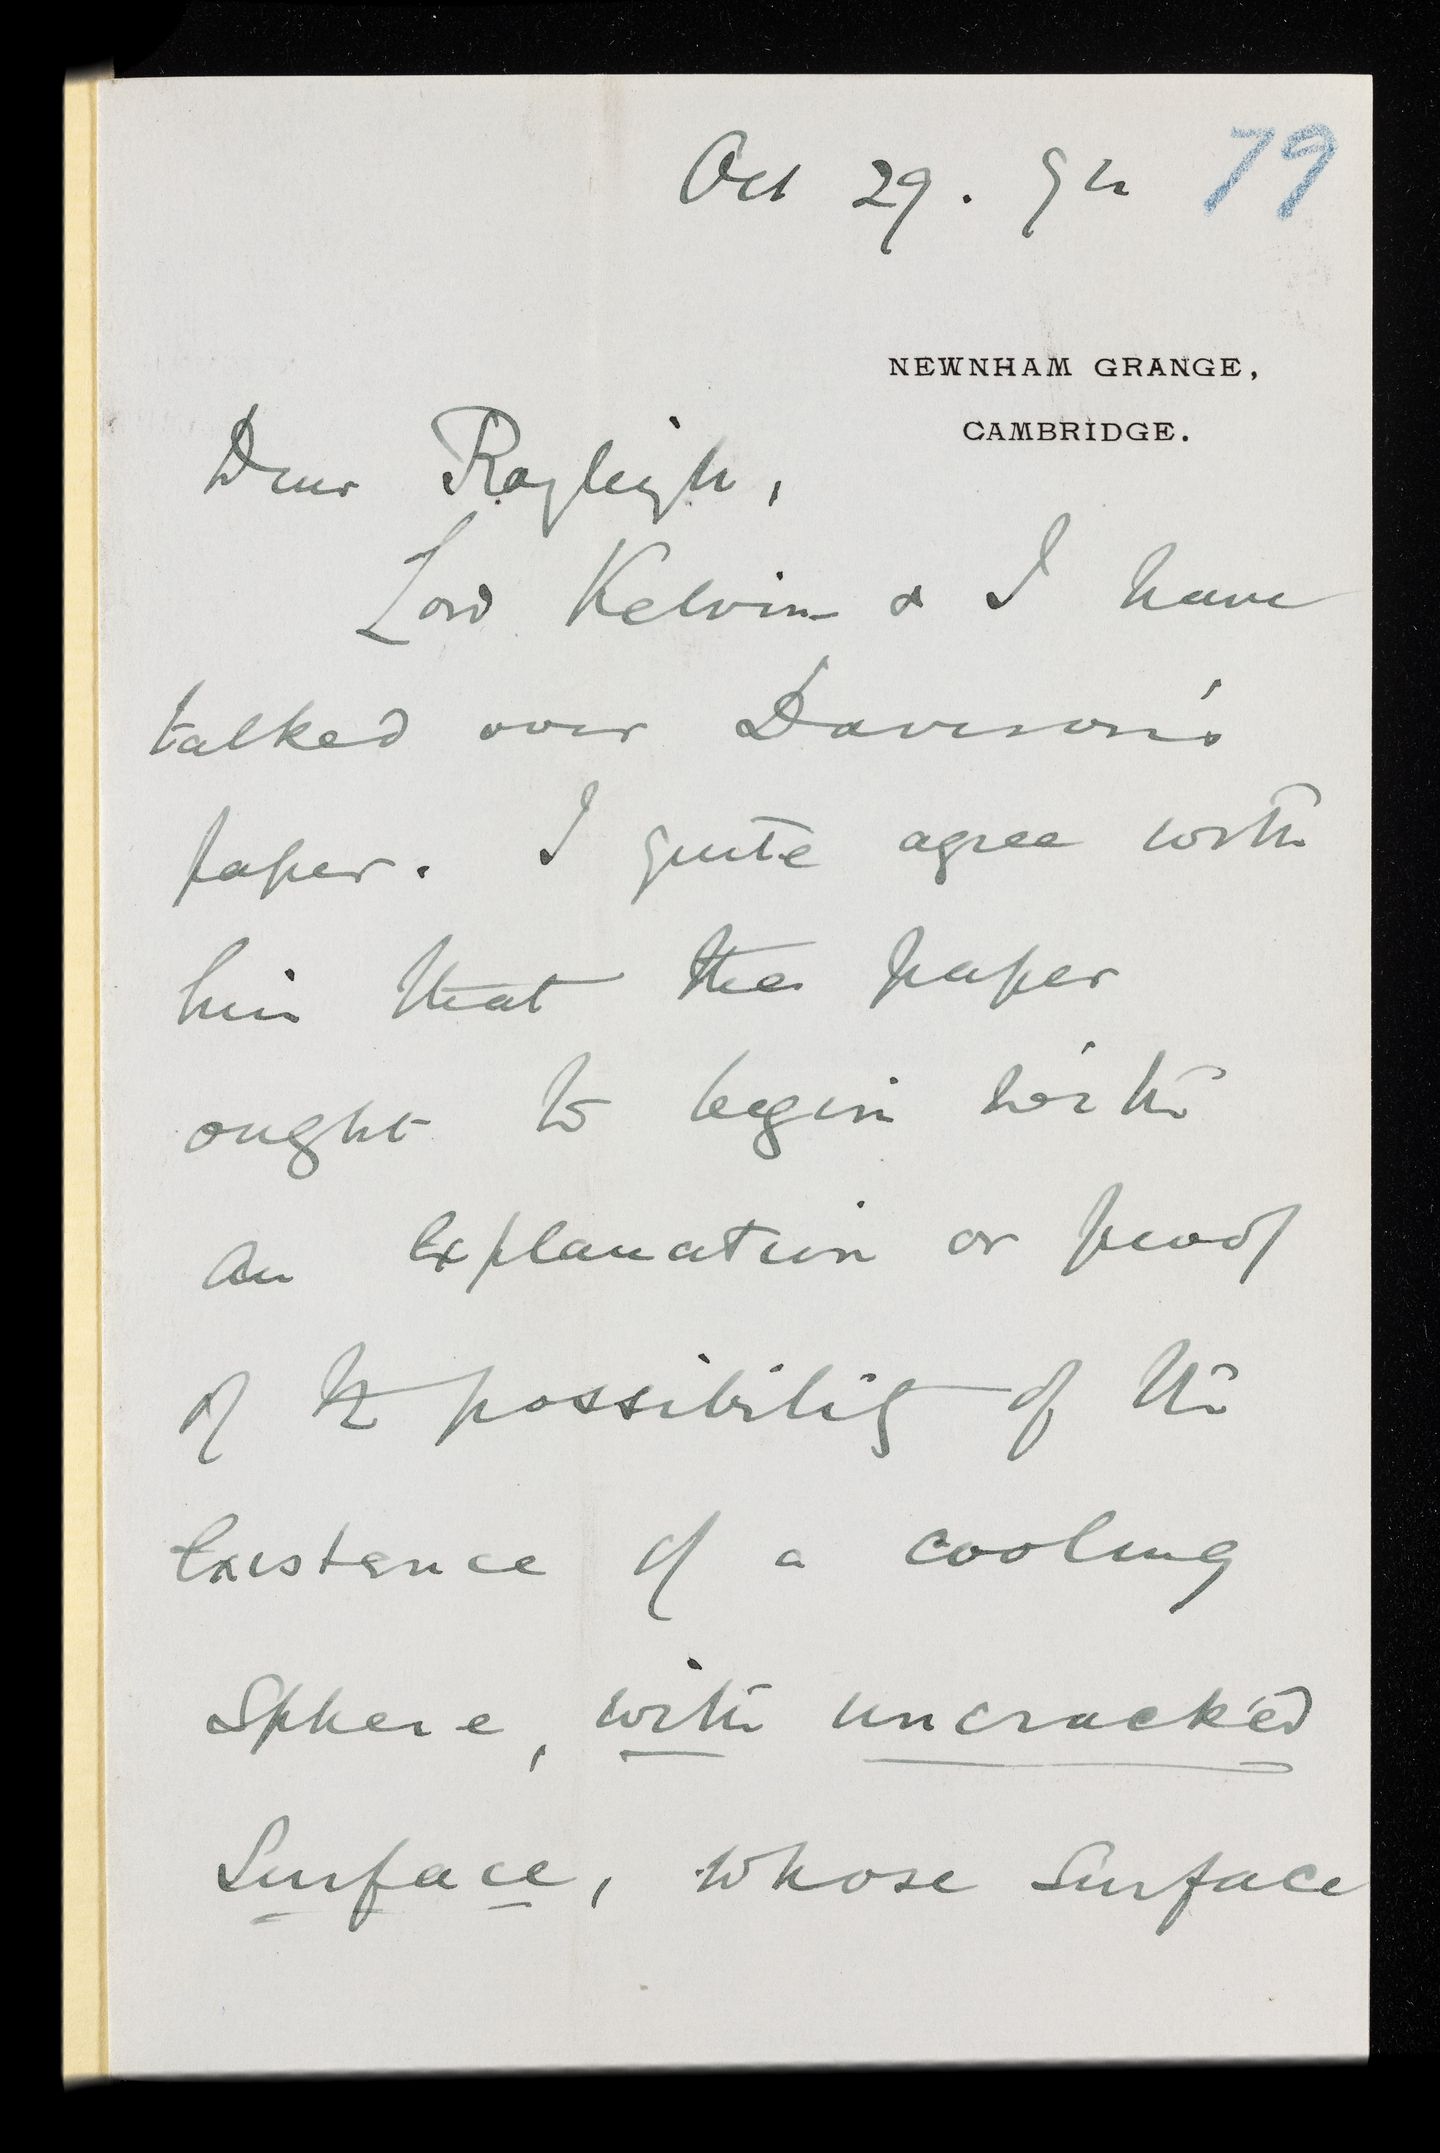 Oct 29. 94 79
NEWNHAM GRANGE,
CAMBRIDGE.
Dear Rayleigh,
Lord Kelvin & I have
talked over Davison's
paper. I quite agree with
him that the paper
ought to begin with
an explanation or proof
of the possibility of the
existence of a cooling
sphere, with uncracked
surface, whose surface